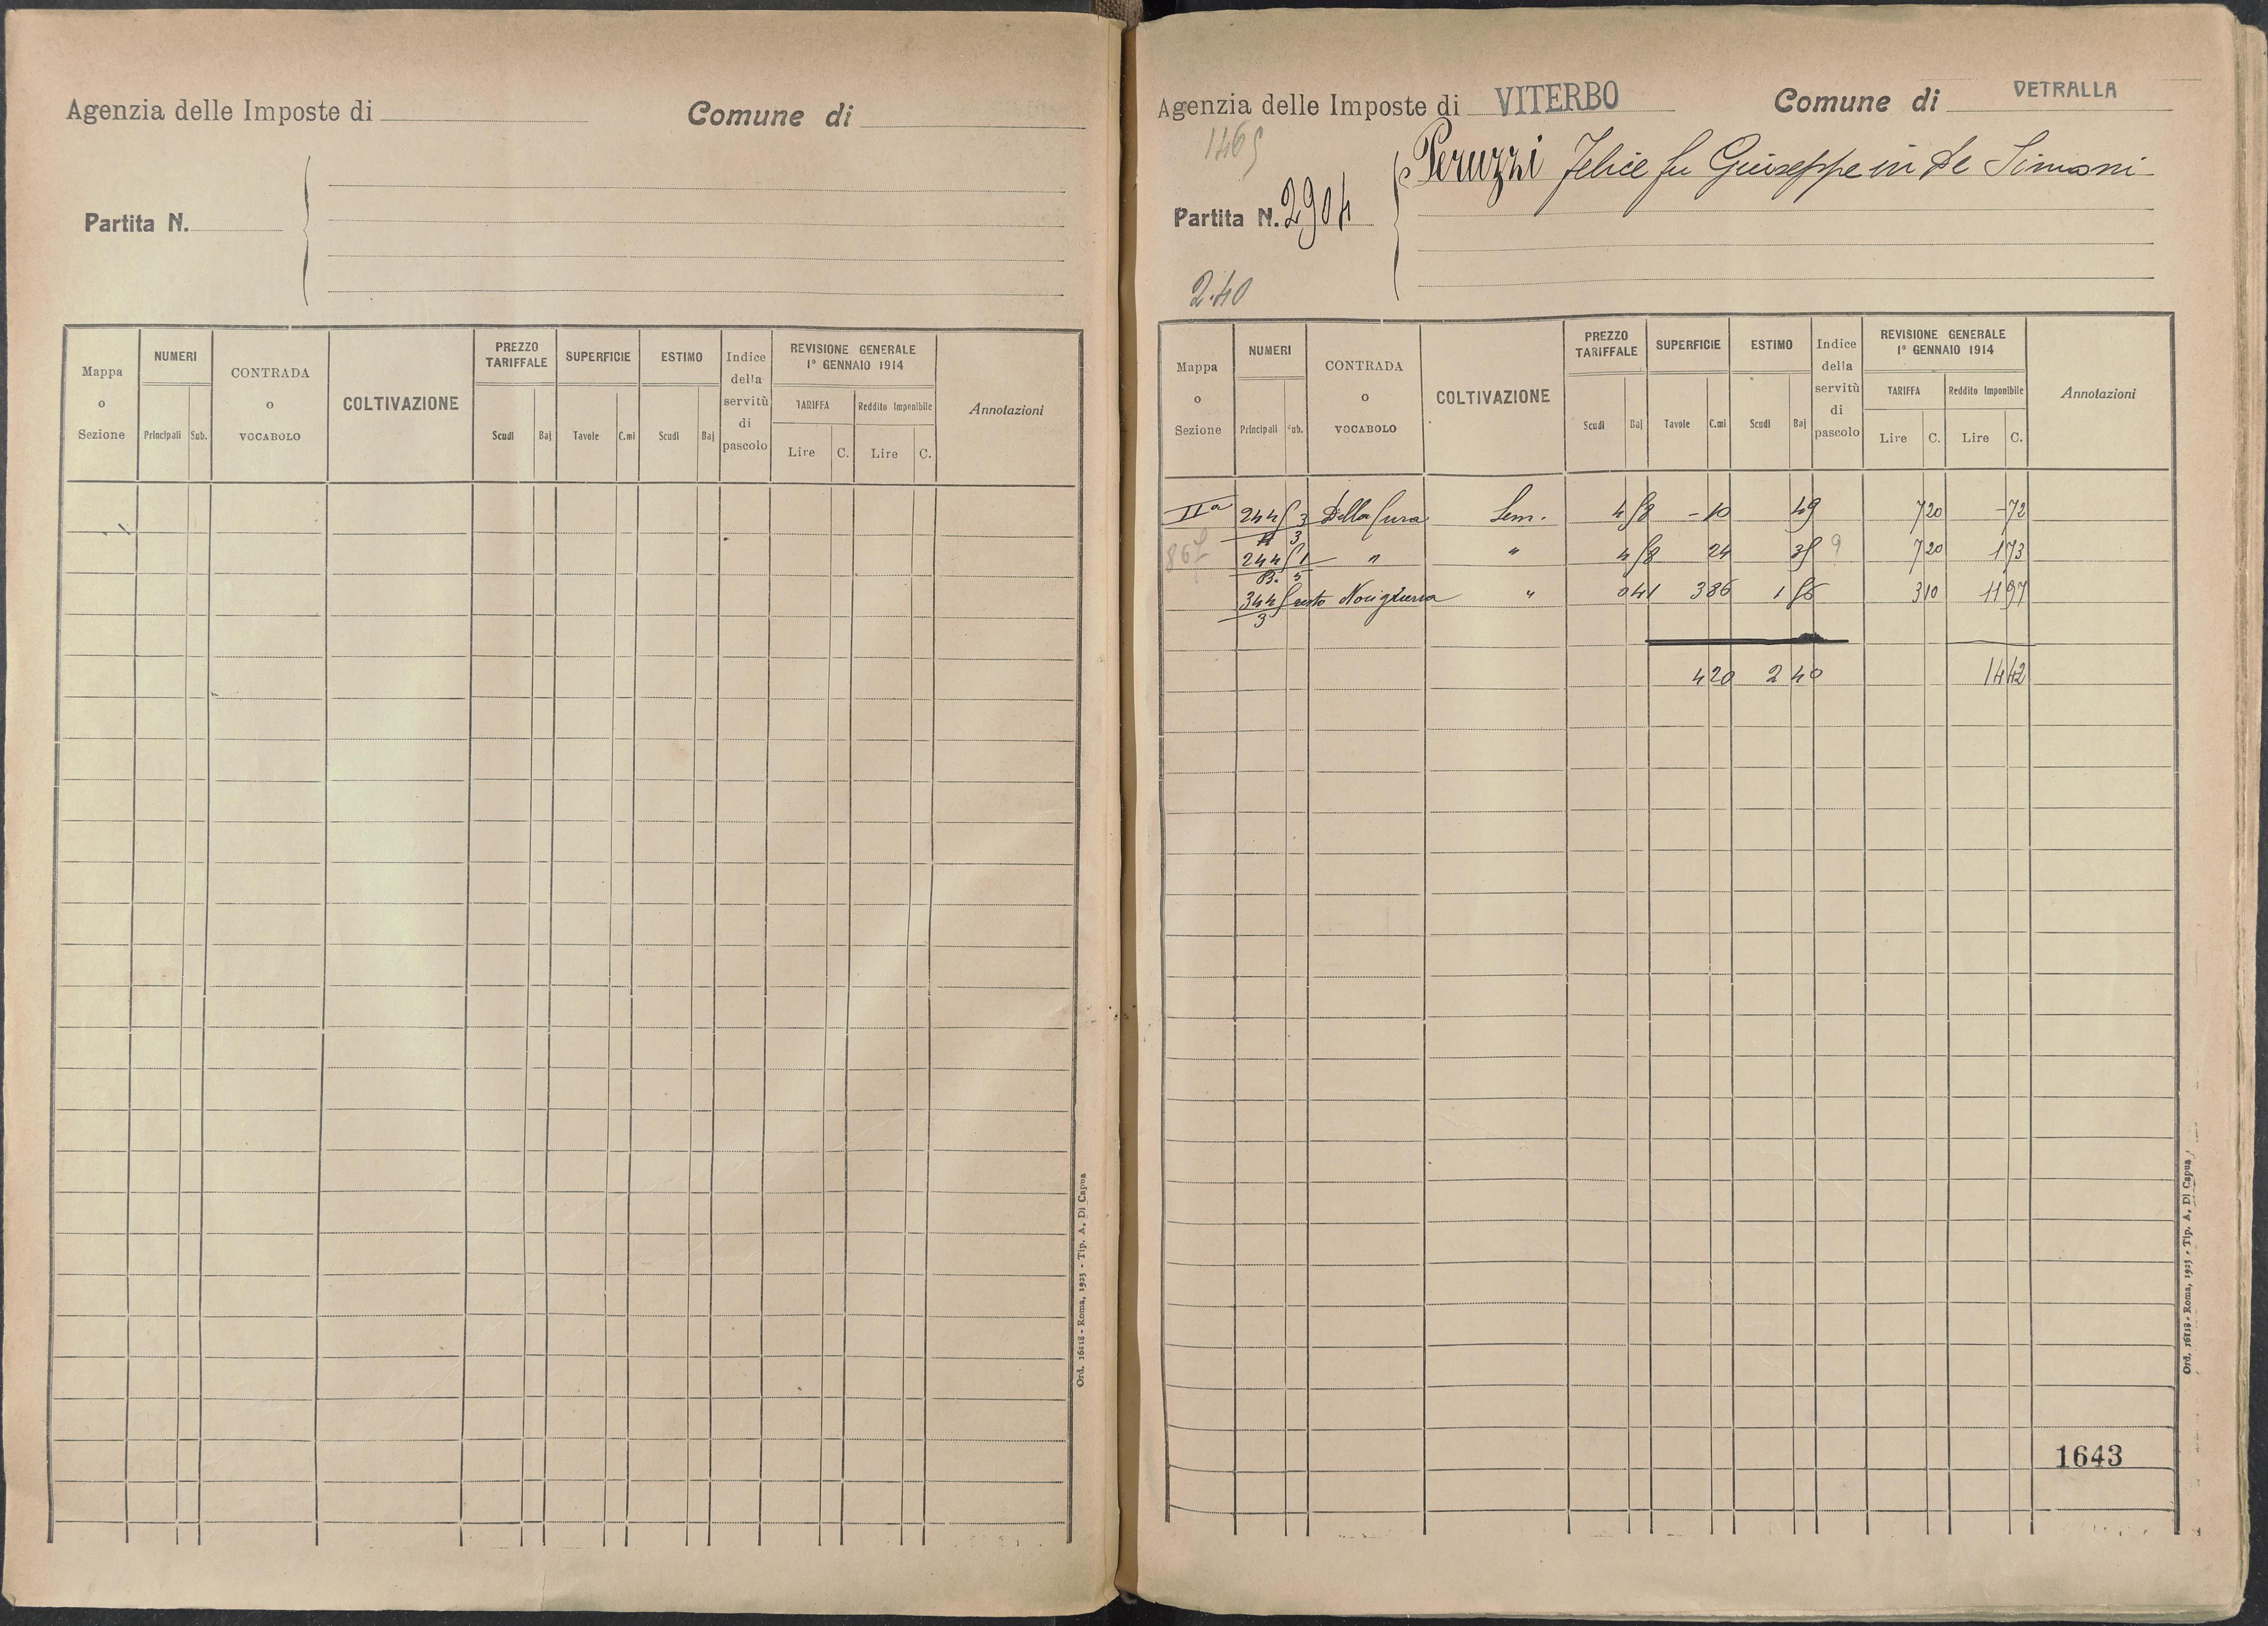 Agenzia delle Imposte di
Comune di
Partita N.
Mappa o Sezione
NUMERI
Principali Sub.
CONTRADA o VOCABOLO
COLTIVAZIONE
PREZZO TARIFFALE
Scudi Baj
SUPERFICIE
Tavole C.mi
ESTIMO
Scudi Baj
Indice della servitù di pascolo
REVISIONE GENERALE 1º GENNAIO 1914
TARIFFA Reddito Imponibile
Lire C. Lire C.
Annotazioni
Ord. 16118 - Roma, 1923 - Tip. A. Di Capua
Agenzia delle Imposte di VITERBO
Comune di VETRALLA
1465
Peruzzi Felice fu Giuseppe in De Simoni
Partita N. 2904
2.40
Mappa o Sezione
NUMERI
Principali Sub.
CONTRADA o VOCABOLO
COLTIVAZIONE
PREZZO TARIFFALE
Scudi Baj
SUPERFICIE
Tavole C.mi
ESTIMO
Scudi Baj
Indice della servitù di pascolo
REVISIONE GENERALE 1º GENNAIO 1914
TARIFFA Reddito Imponibile
Lire C. Lire C.
Annotazioni
IIª 244 3 Della Cura Sem. 4 58 - 10 49 7 20 - 72
3
244 1 " " 4 58 24 35 9 7 20 1 73
B. 5
344 resto " 0 41 3 86 1 56 3 10 11 97
3
4 20 2 40 14 42
1643
Ord. 16118 - Roma, 1923 - Tip. A. Di Capua